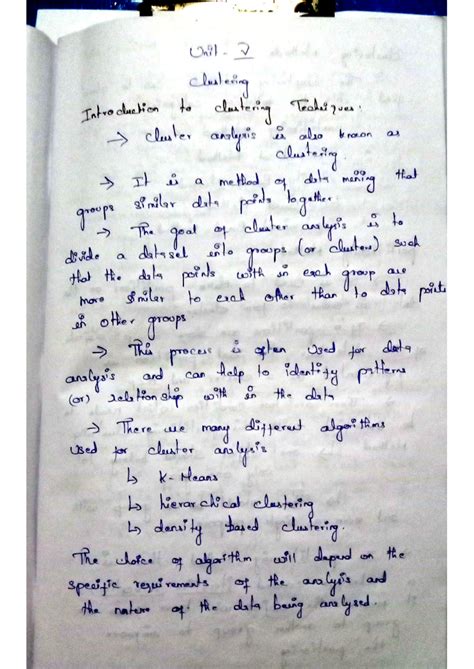 Unit - V
Clustering
Introduction to clustering Techiques:
→ cluster analysis is also known as
clustering.
→ It is a method of data mening that
groups similar data points together
→ The goal of cluster analysis is to
divide a dataset into groups (or clusters) such
that the data points with in each group are
more similar to each other than to data points
in other groups
→ This process is often used for data
analysis and can help to identify patterns
(or) relationship with in the data
→ There are many different algorithms
used for cluster analysis
↳ K-Means
↳ hierarchical clustering
↳ density based clustering.
The choice of algorithm will depend on the
specific requirements of the analysis and
the nature of the data being analysed.